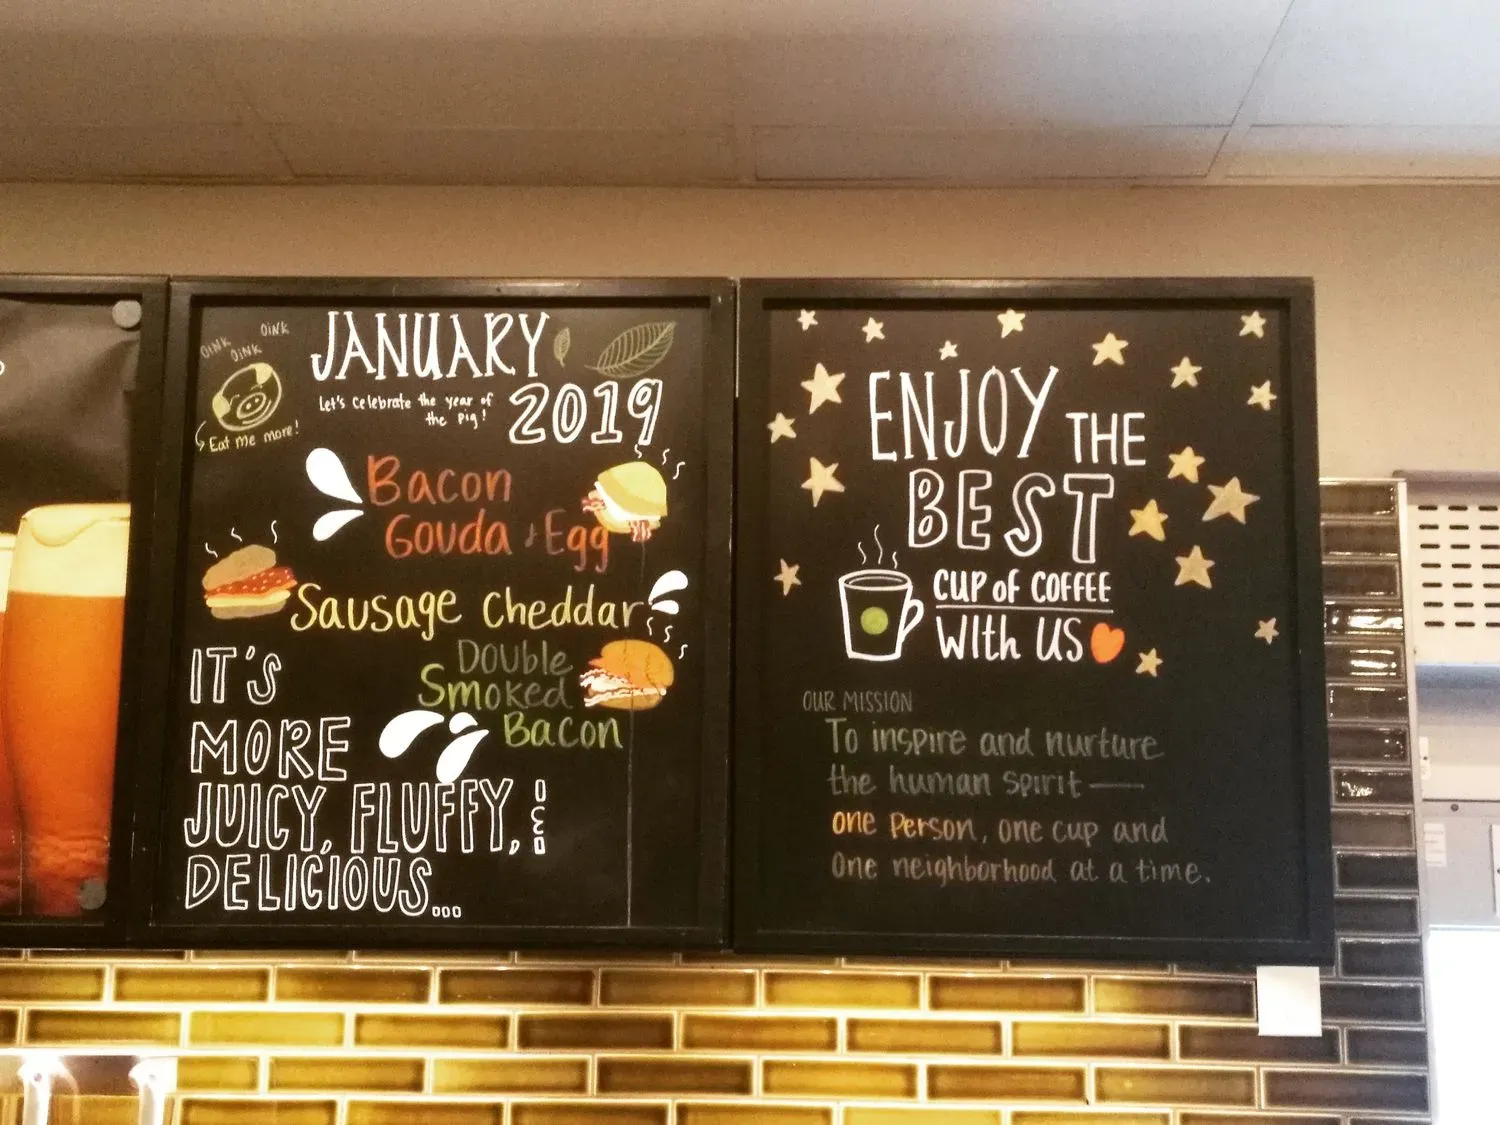 OINK
OINK
OINK
Eat me more!
JANUARY
2019
Let's celebrate the year of
the pig!
Bacon
Gouda + Egg
Sausage Cheddar
Double
Smoked
Bacon
IT'S
MORE
JUICY, FLUFFY, &
DELICIOUS...
ENJOY THE
BEST
CUP OF COFFEE
WITH US
OUR MISSION
To inspire and nurture
the human spirit —
one person, one cup and
one neighborhood at a time.